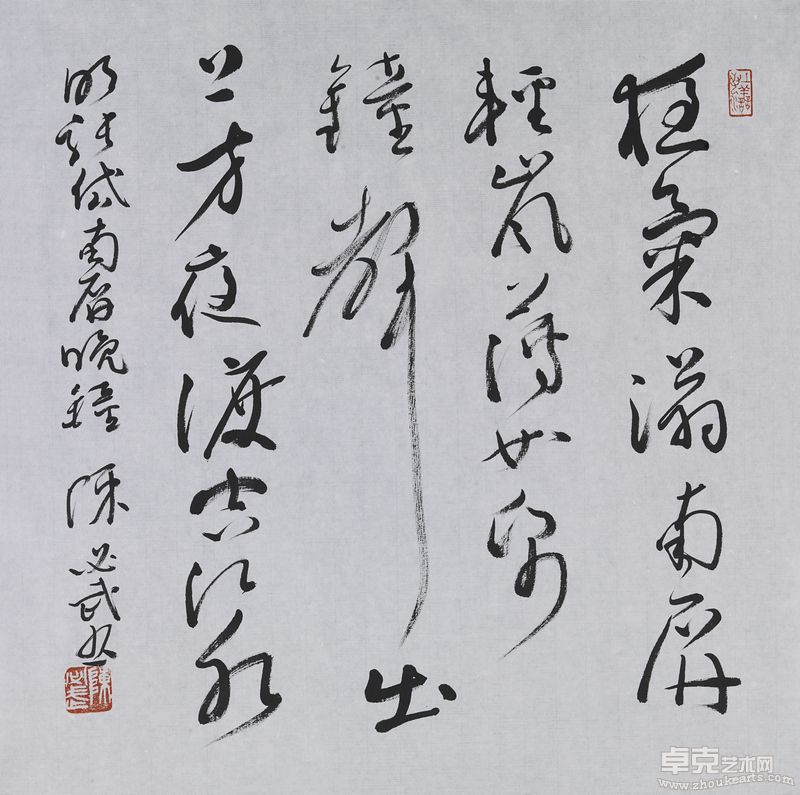 夜氣滃南屏
輕嵐薄如帋
鐘聲出
上方夜渡空江水
明張岱南屏晚鐘 陳必武書
卓克艺术网
www.zhoukearts.com